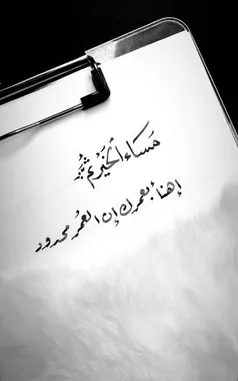 مَساء الخَيْر ثُمَّ
إهنأ بعمرك إن العُمر محدود